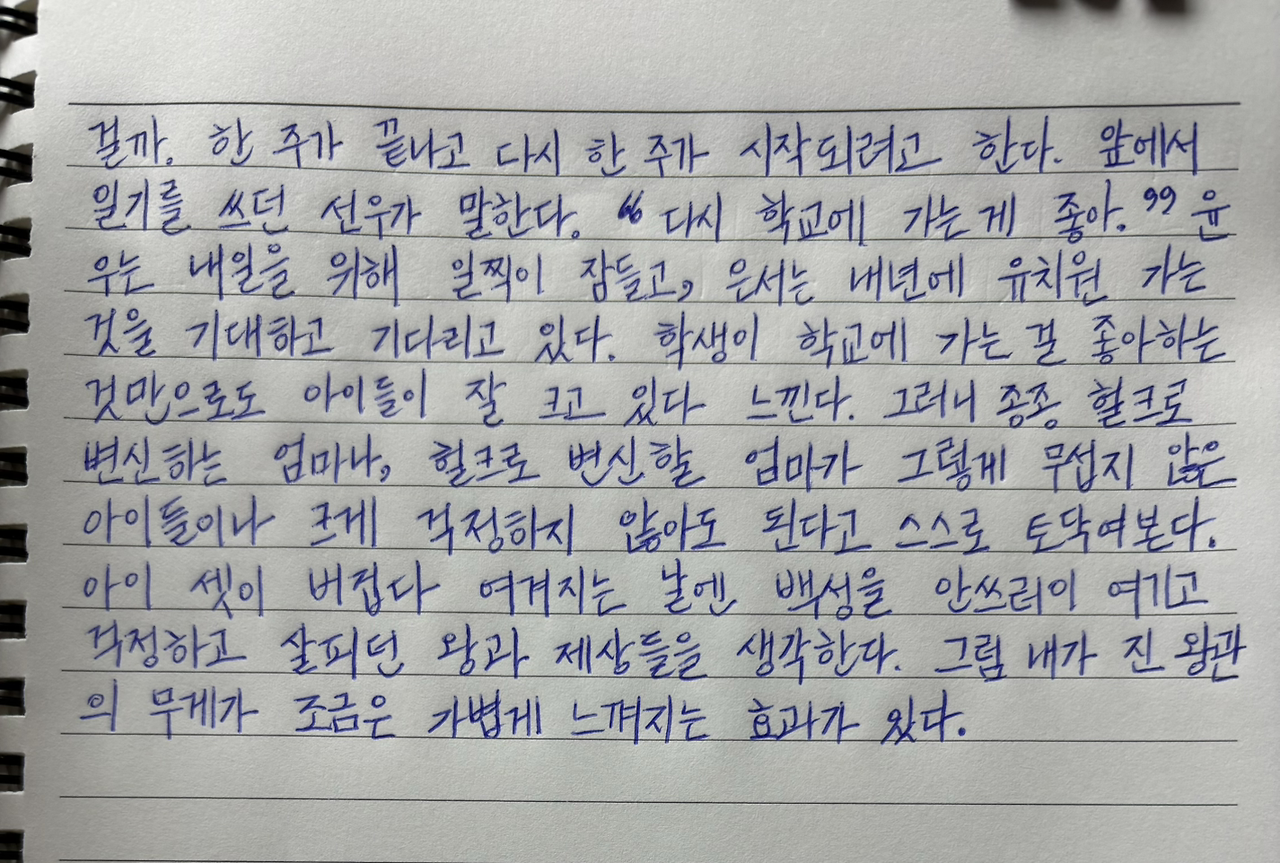 걸까. 한 주가 끝나고 다시 한 주가 시작되려고 한다. 앞에서
일기를 쓰던 선우가 말한다. “다시 학교에 가는게 좋아.” 윤
우는 내일을 위해 일찍이 잠들고, 은서는 내년에 유치원 가는
것을 기대하고 기다리고 있다. 학생이 학교에 가는 걸 좋아하는
것만으로도 아이들이 잘 크고 있다 느낀다. 그러니 종종 헐크로
변신하는 엄마나, 헐크로 변신할 엄마가 그렇게 무섭지 않은
아이들이나 크게 걱정하지 않아도 된다고 스스로 토닥여본다.
아이 셋이 버겁다 여겨지는 날엔 백성을 안쓰러이 여기고
걱정하고 살피던 왕과 제상들을 생각한다. 그럼 내가 진 왕관
의 무게가 조금은 가볍게 느껴지는 효과가 있다.